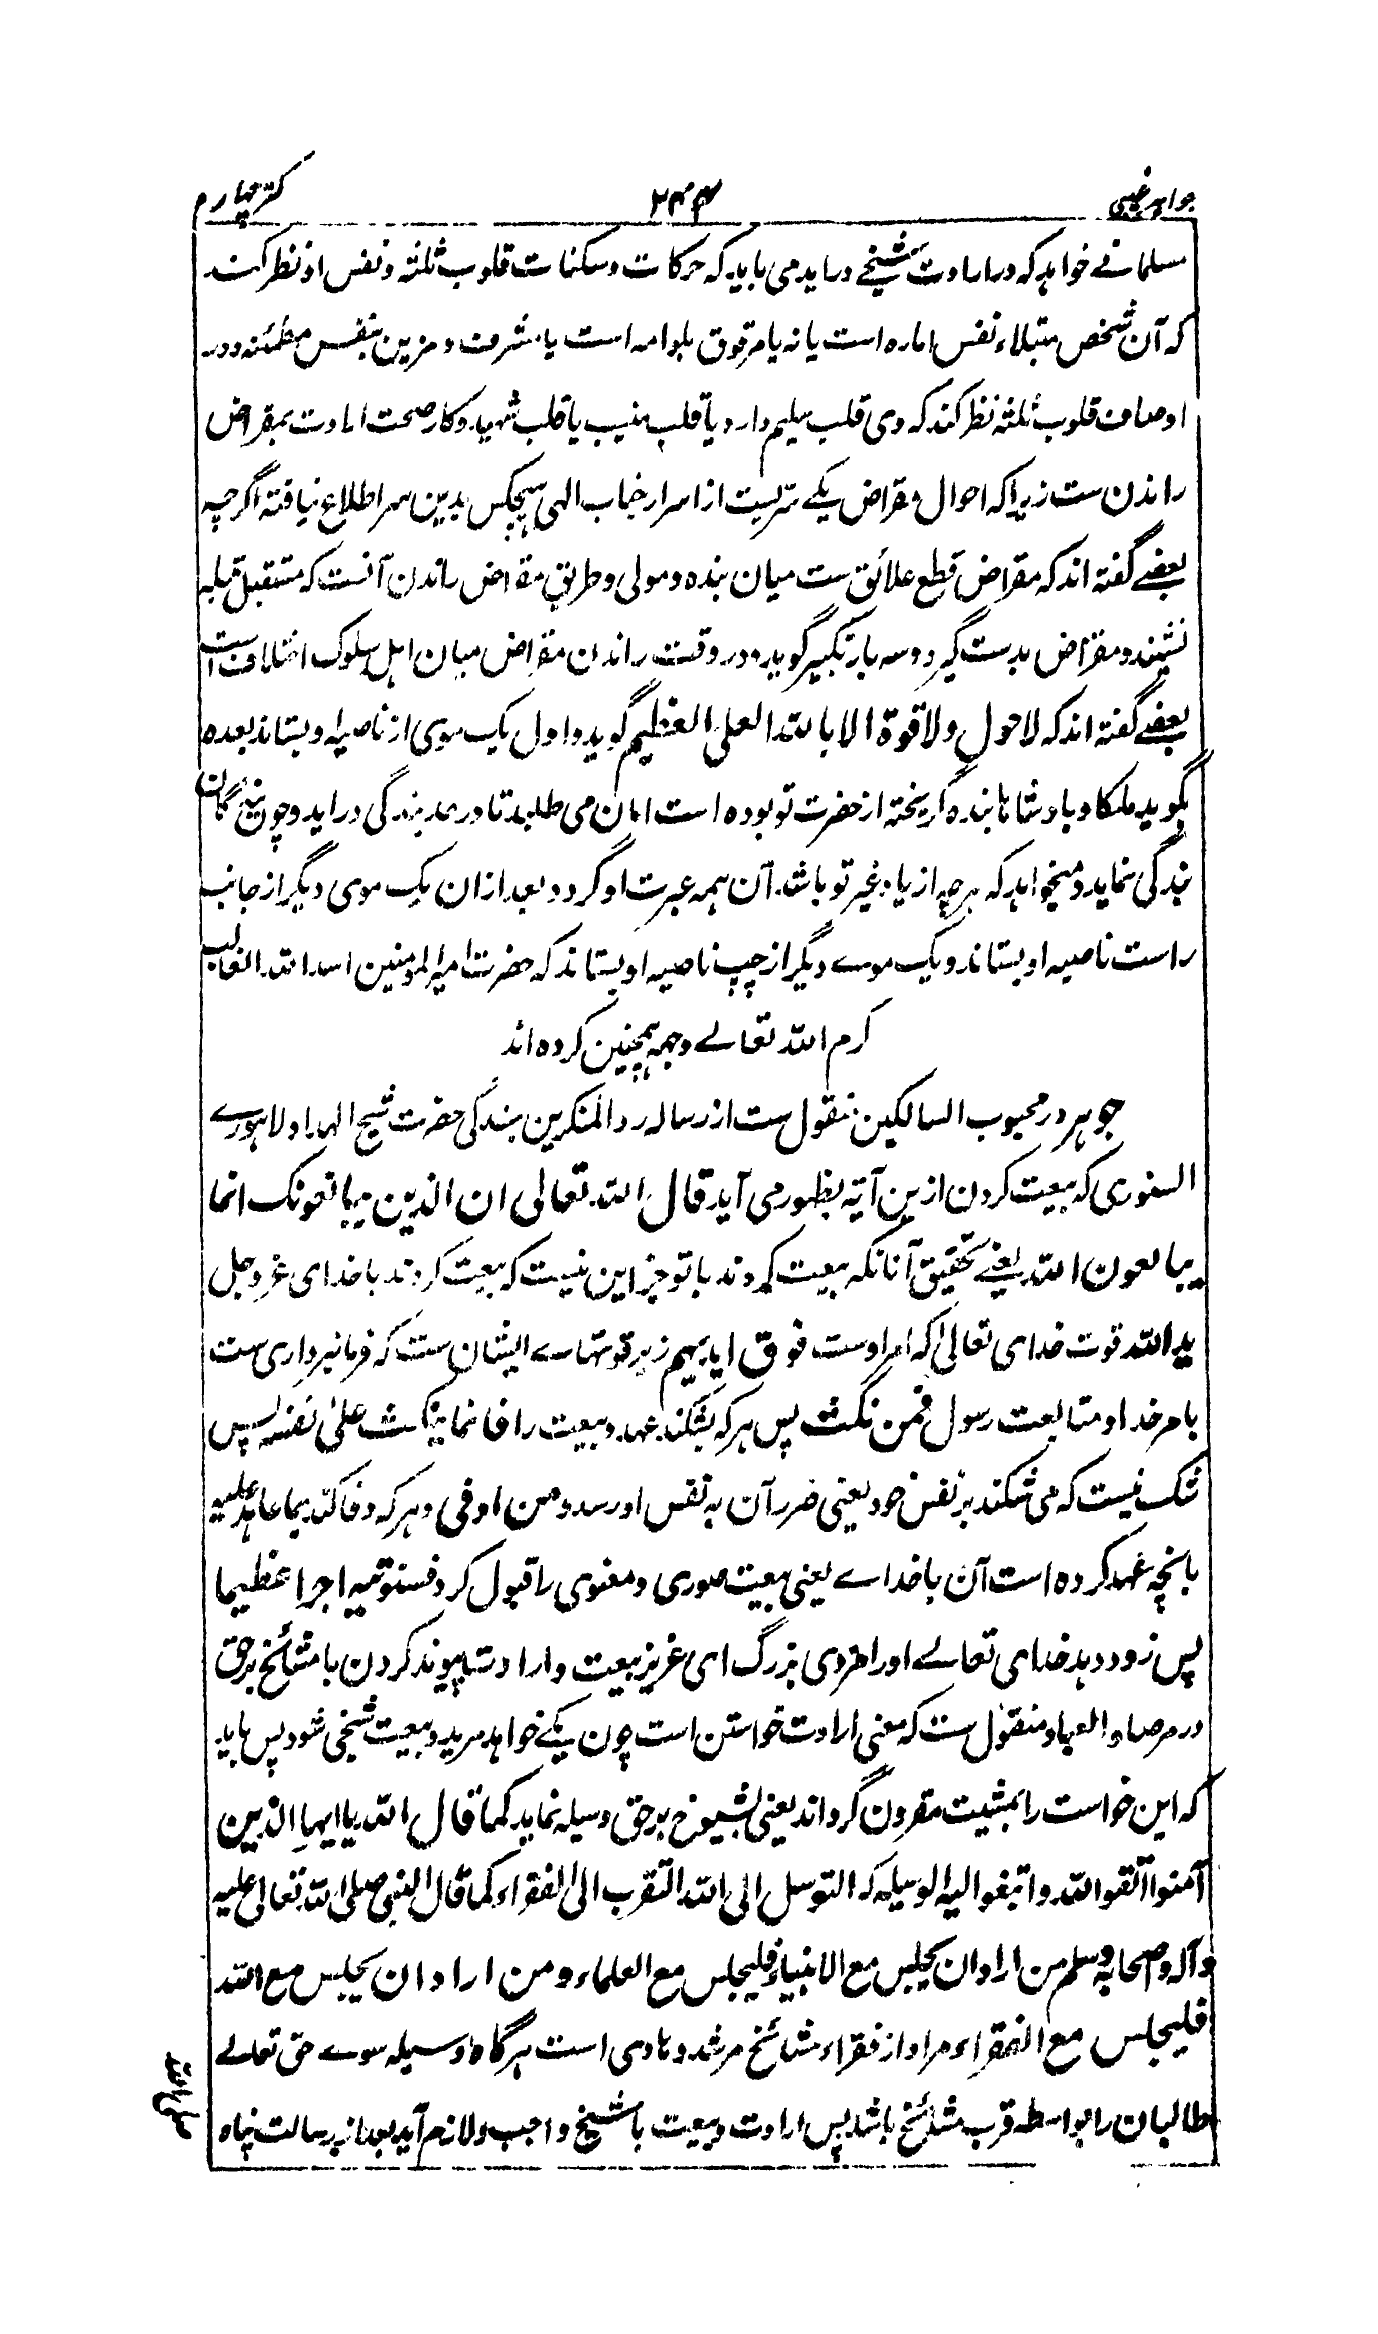 جواهر غیبی
۲۴۴
کنز چهارم
مسلمانے خواهد که در ارادت شیخے در اید می باید که حرکات و سکنات قلوب ثلثه و نفس او نظر کند
که آن شخص مبتلاء نفس اماره است یا نه یا مرقوق بلوامه است یا مشرف و مزین بنفس مطمئنه و در
اوصاف قلوب ثلثه نظر کند که وی قلب سلیم دارد یا قلب منیب یا قلب شهید و کار صحت ارادت بمقراض
راندن ست زیرا که احوال مقراض یکے سریست از اسرار جناب الهی هیچکس بدین سر اطلاع نیافته اگرچه
بعضے گفته اند که مقراض قطع علائق ست میان بنده و مولی و طریق مقراض راندن آنست که مستقبل قبله
نشیند و مقراض بدست گیرد و سه بار تکبیر گوید و در وقت راندن مقراض میان اهل سلوک اختلاف است
بعضے گفته اند که لاحول ولا قوة الا بالله العلی العظیم گوید و اول یک موی از ناصیه او بستاند بعده
بگوید ملکا و بادشاها بنده گریخته از حضرت تو بوده است امان می طلبد تا در بند بندگی دراید و چون بندگان
بندگی نماید و میخواهد که هرچه از یاد غیر تو باشد آن همه عبرت او گردد بعد ازان یک موی دیگر از جانب
راست ناصیه او بستاند و یک موے دیگر از چپ ناصیه او بستاند که حضرت امیر المومنین اسد الله الغالب
کرم الله تعالے وجهه همچنین کرده اند
جوهر در محبوب السالکین منقول ست از رساله رد المنکرین بندگی حضرت شیخ الهداد لاهورے
السنوری که بیعت کردن ازین آیة بظهور می آید قال الله تعالی ان الذین یبایعونک انما
یبایعون الله یعنے بتحقیق آنانکه بیعت کردند با تو جز این نیست که بیعت کردند با خدای عز و جل
ید الله قوت خدای تعالی که امر اوست فوق ایدیهم زبر قوتهاے ایشان ست که فرمانبرداری ست
بامر خدا و متابعت رسول فمن نکث پس هر که بشکند عهد و بیعت را فانما ینکث علی نفسه پس
شک نیست که می شکند بر نفس خود یعنی ضرر آن به نفس او رسد و من اوفی و هر که وفا کند بما عاهد علیه
بانچه عهد کرده است آن با خداے یعنی بیعت صوری و معنوی را قبول کرد فسنوتیه اجرا عظیما
پس زود دهد خدای تعالے اورا مزدی بزرگ ای عزیز بیعت و ارادت پیوند کردن با مشائخ برحق
در مرصاد العباد منقول ست که معنی ارادت خواستن است چون یکے خواهد مرید و بیعت شیخی شود پس باید
که این خواست را بمشیت مقرون گرداند یعنی بشیوخ برحق وسیله نماید کما قال الله یا ایها الذین
آمنوا اتقوا الله وابتغوا الیه الوسیله که التوسل الی الله التقرب الی الفقراء کما قال النبی صلی الله تعالی علیه
وآله واصحابه وسلم من اراد ان یجلس مع الانبیاء فلیجلس مع العلماء و من اراد ان یجلس مع الله
فلیجلس مع الفقراء مراد از فقراء مشائخ مرشد و هادی است هرگاه وسیله سوے حق تعالے
طالبان را بواسطه قرب مشائخ باشد پس ارادت و بیعت با شیخ واجب و لازم آید بعد از رسالت پناه
صلی الله